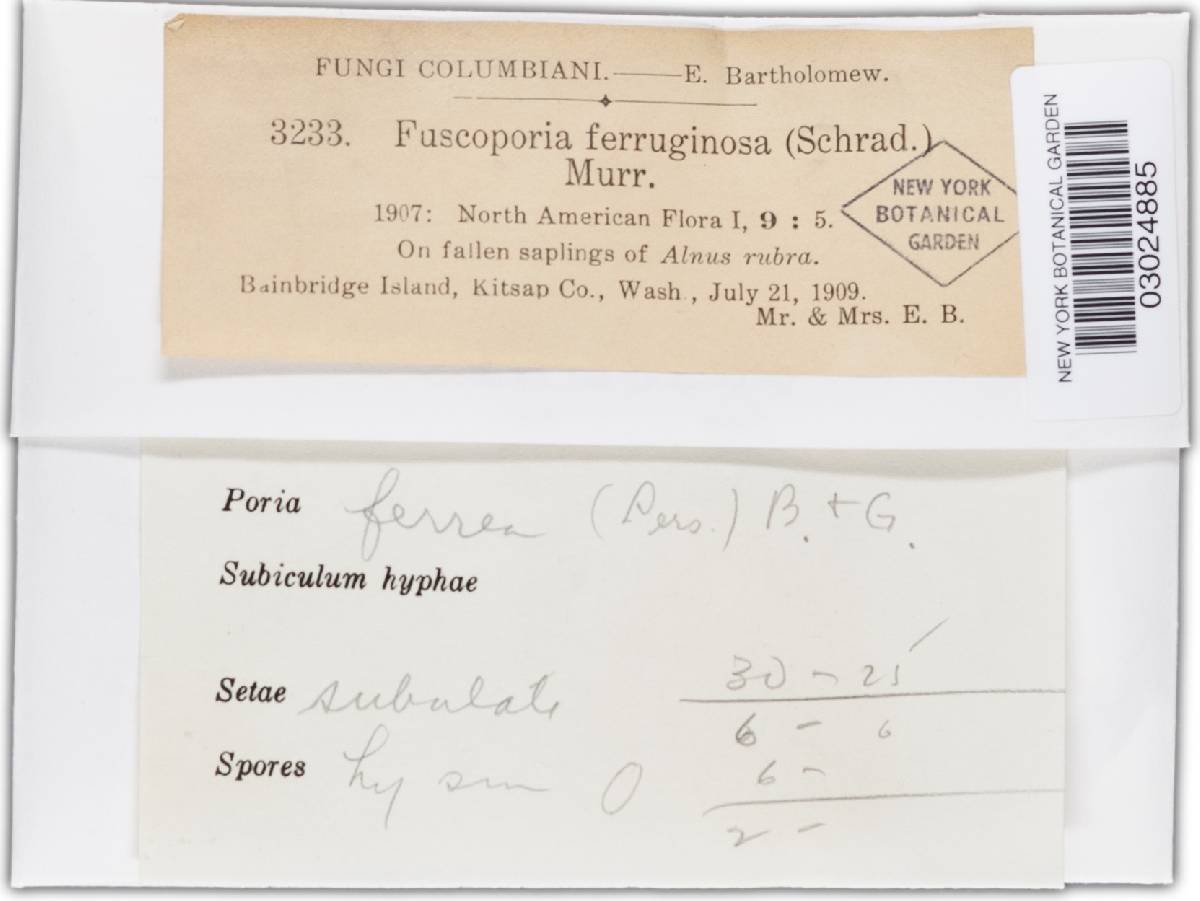 FUNGI COLUMBIANI.——E. Bartholomew.
3233. Fuscoporia ferruginosa (Schrad.)
Murr.
1907: North American Flora I, 9 : 5.
On fallen saplings of Alnus rubra.
Bainbridge Island, Kitsap Co., Wash., July 21, 1909.
Mr. & Mrs. E. B.
NEW YORK
BOTANICAL
GARDEN
NEW YORK BOTANICAL GARDEN
03024885
Poria ferrea (Pers.) B. + G.
Subiculum hyphae
Setae subulate 30 - 25
6 - 6
Spores hy sm 0 6 -
2 -